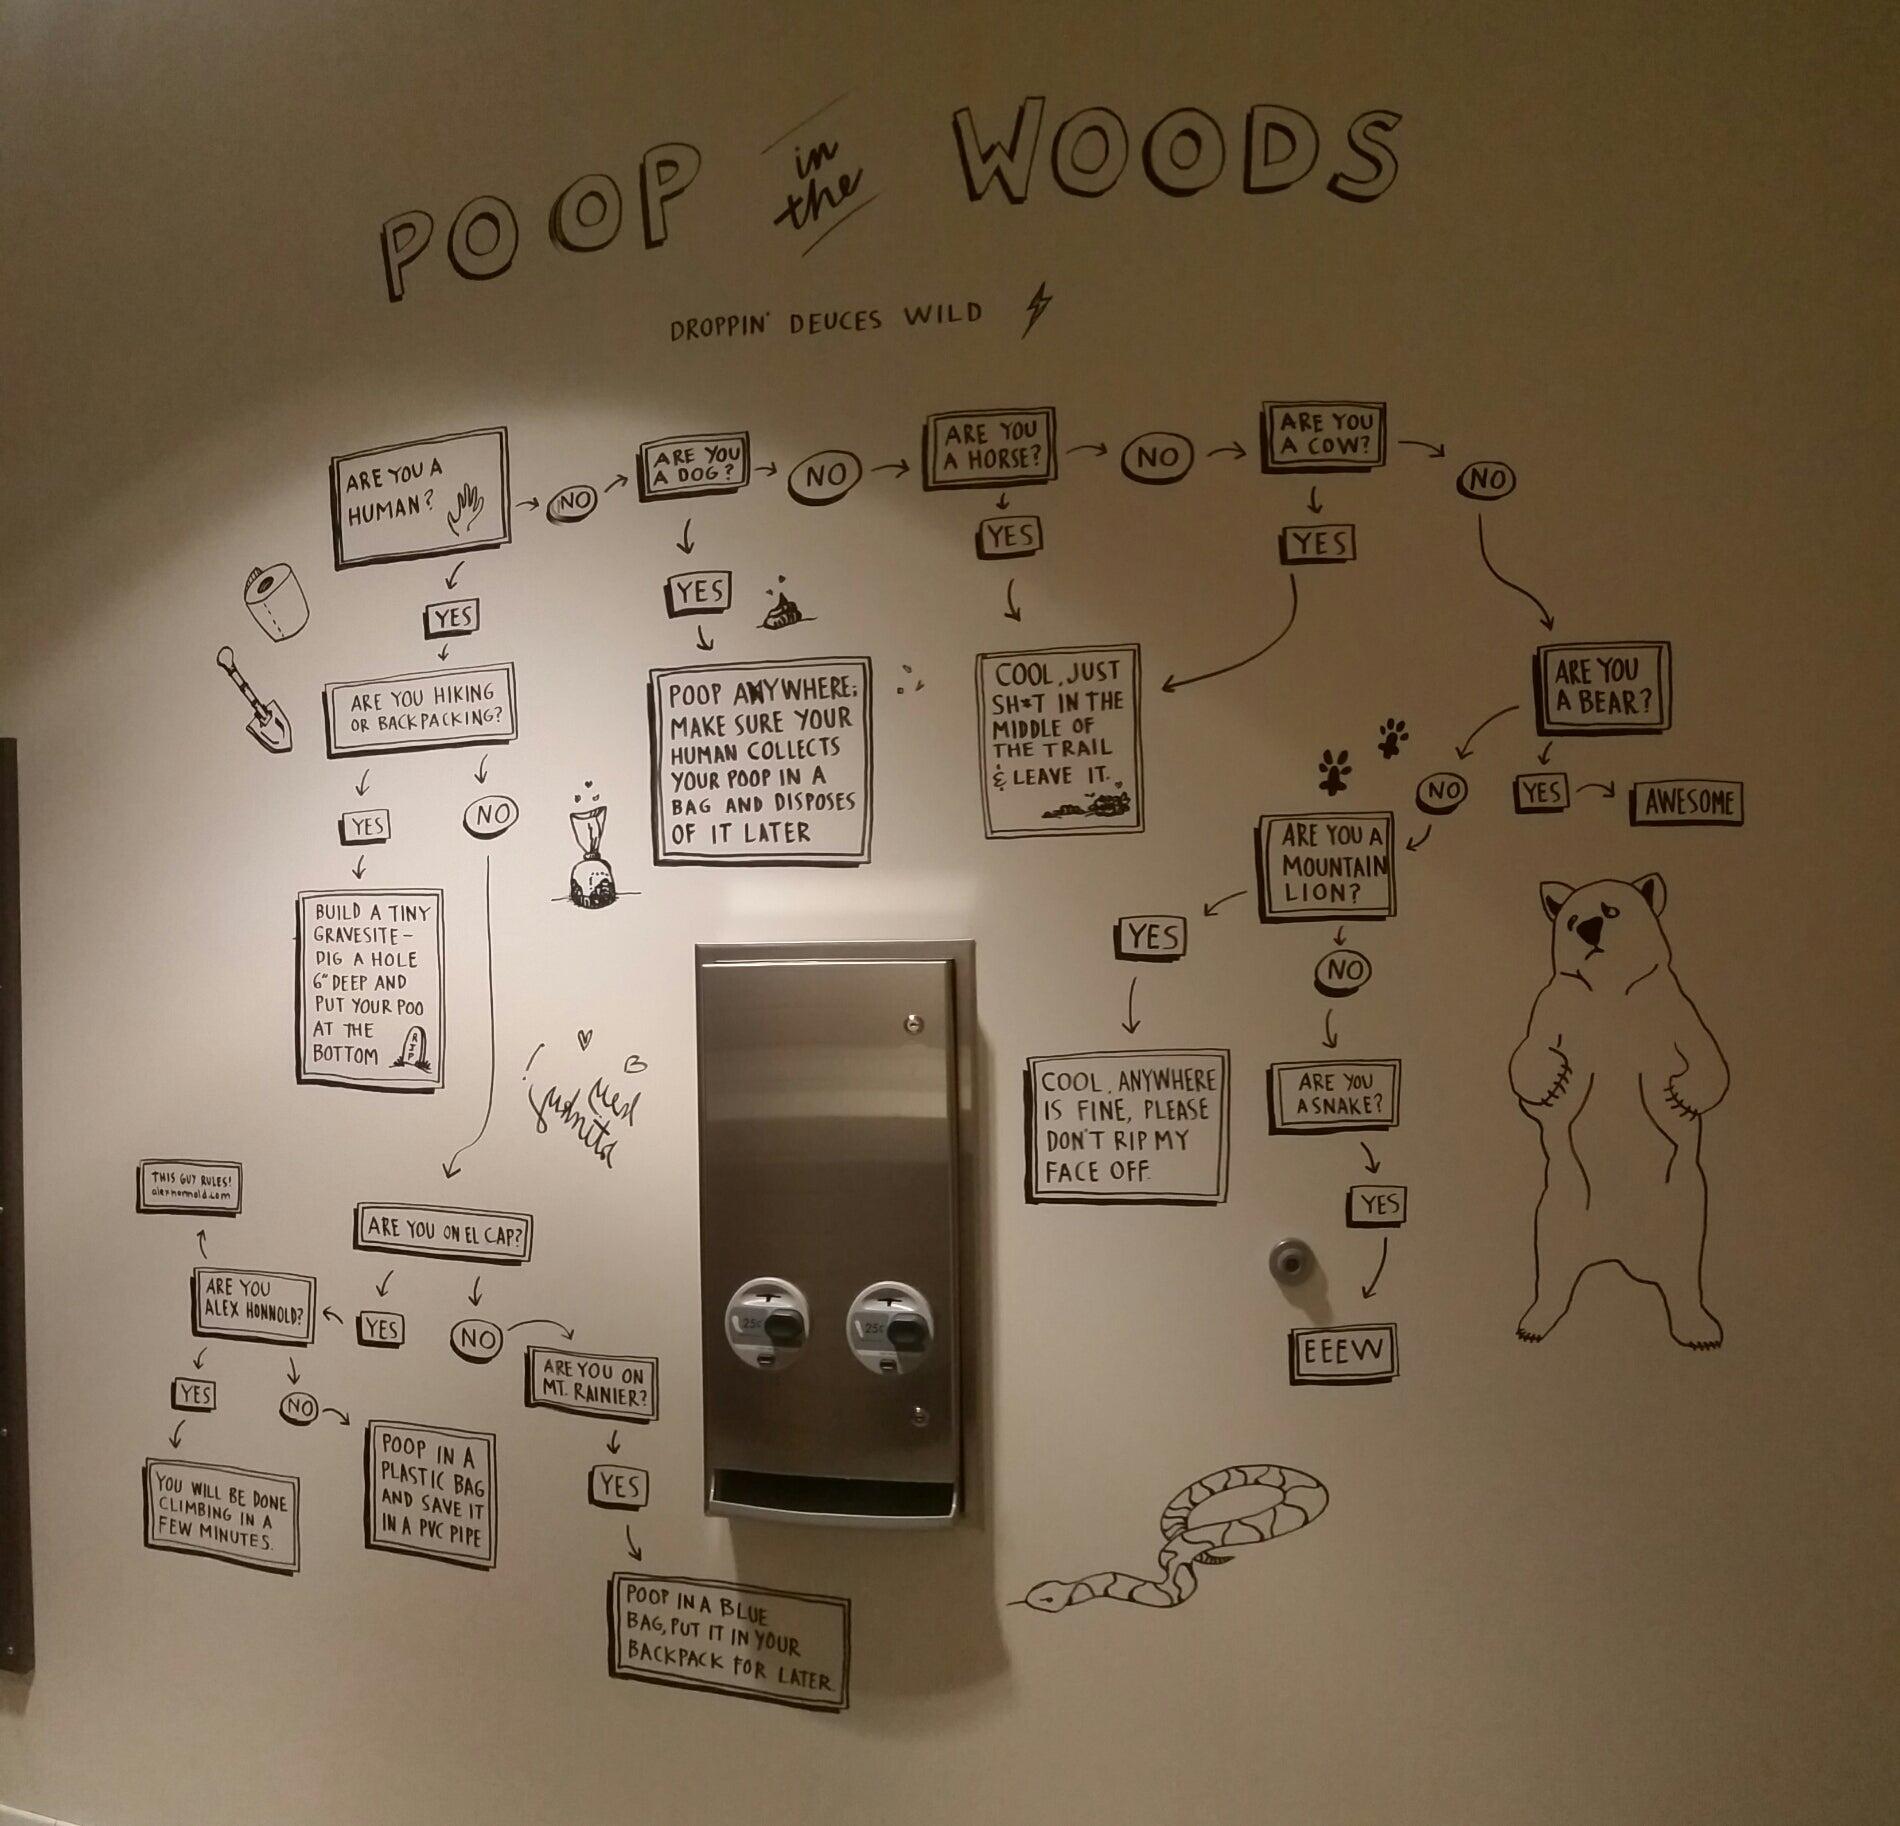 POOP in the WOODS
DROPPIN' DEUCES WILD
ARE YOU A
HUMAN?
NO
ARE YOU
A DOG?
NO
ARE YOU
A HORSE?
NO
ARE YOU
A COW?
NO
YES
ARE YOU HIKING
OR BACKPACKING?
YES
NO
BUILD A TINY
GRAVESITE-
DIG A HOLE
6" DEEP AND
PUT YOUR POO
AT THE
BOTTOM
RIP
YES
POOP ANYWHERE;
MAKE SURE YOUR
HUMAN COLLECTS
YOUR POOP IN A
BAG AND DISPOSES
OF IT LATER
YES
YES
COOL, JUST
SH*T IN THE
MIDDLE OF
THE TRAIL
& LEAVE IT.
ARE YOU
A BEAR?
NO
YES
AWESOME
ARE YOU A
MOUNTAIN
LION?
YES
NO
COOL, ANYWHERE
IS FINE, PLEASE
DON'T RIP MY
FACE OFF.
ARE YOU
A SNAKE?
YES
EEEW
ARE YOU ON EL CAP?
YES
NO
THIS GUY RULES!
alexhonnold.com
ARE YOU
ALEX HONNOLD?
YES
NO
YOU WILL BE DONE
CLIMBING IN A
FEW MINUTES.
POOP IN A
PLASTIC BAG
AND SAVE IT
IN A PVC PIPE
ARE YOU ON
MT. RAINIER?
YES
POOP IN A BLUE
BAG, PUT IT IN YOUR
BACKPACK FOR LATER.
25¢
25¢